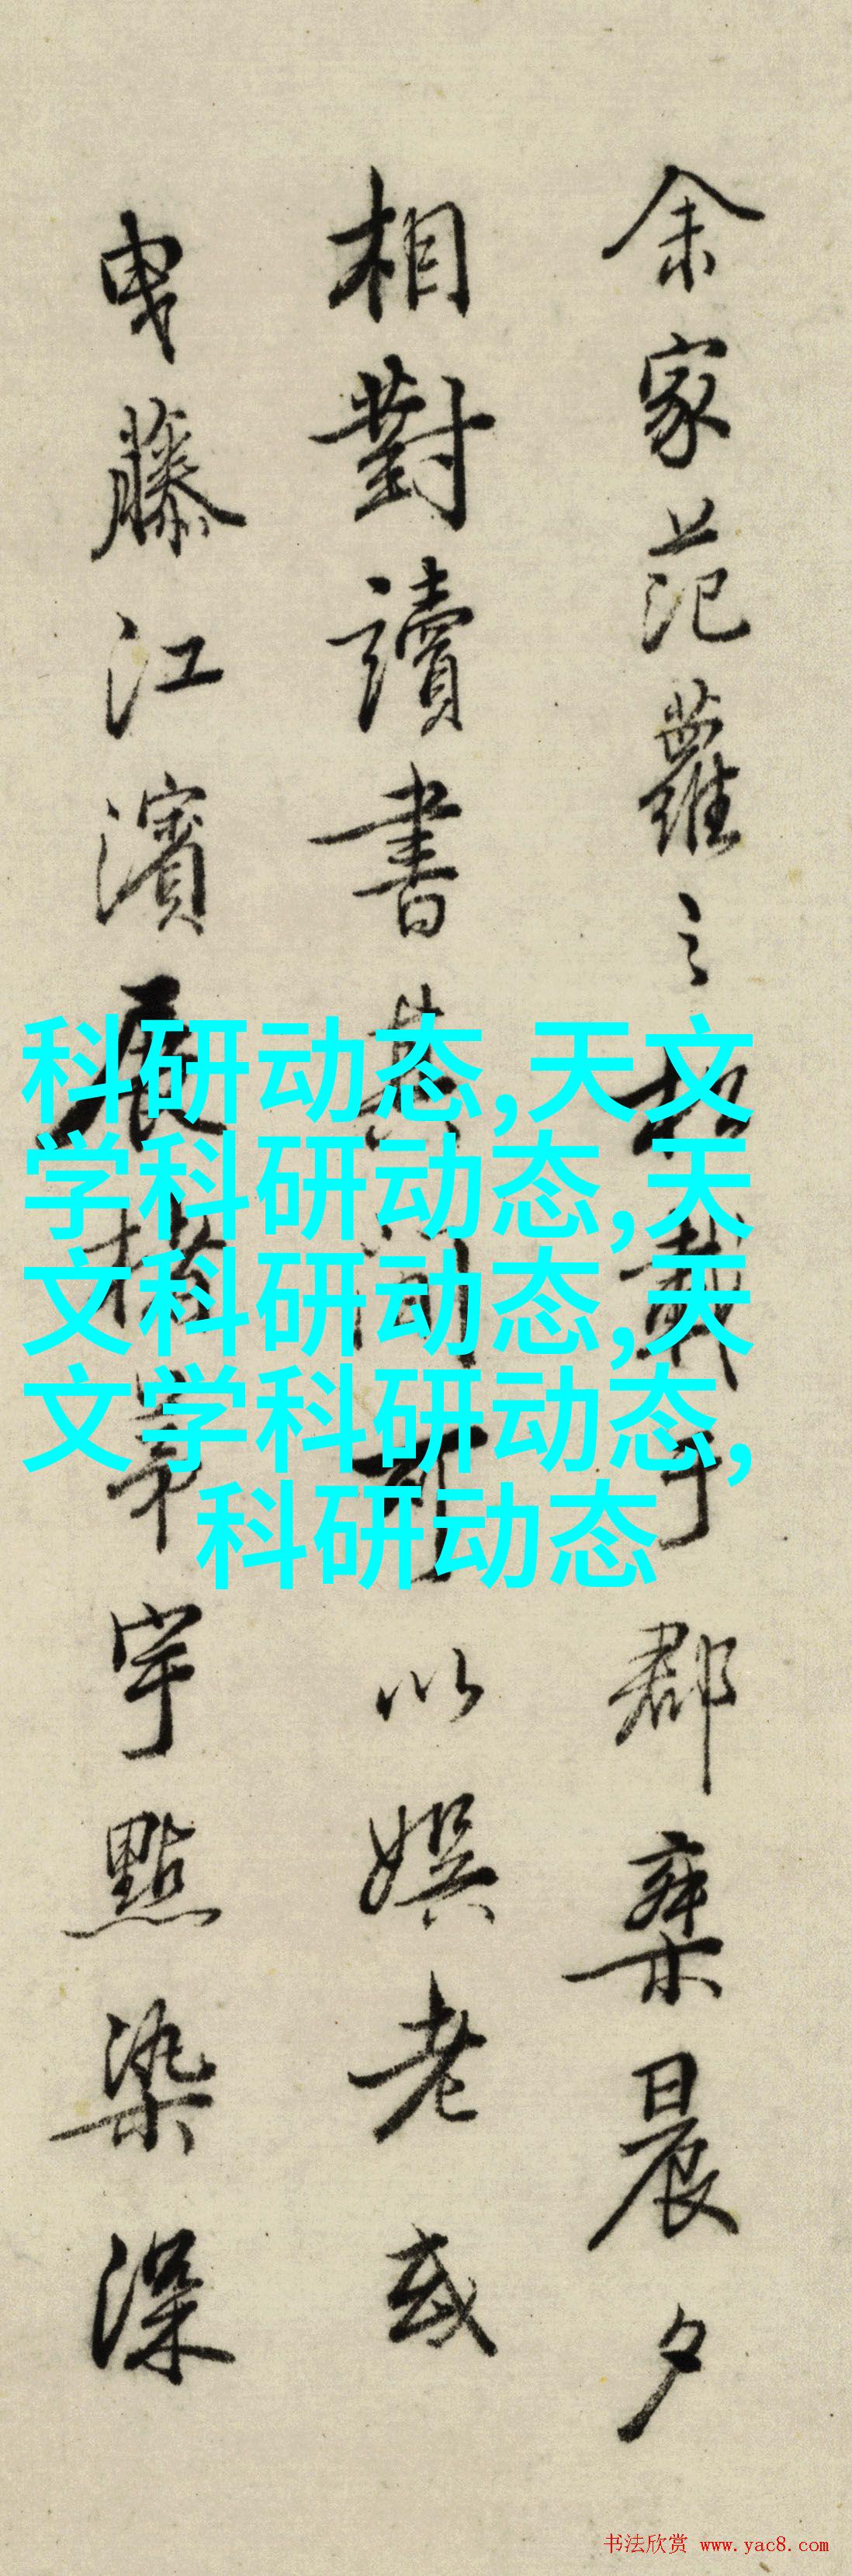 余家范蘿之
郡
晨夕
相對讀書
可以娯老或
曳藤江濱展
宇點染深
科研动态,天文
学科研动态,天
文科研动态,天
文学科研动态,
科研动态
书法欣赏 www.yac8.com